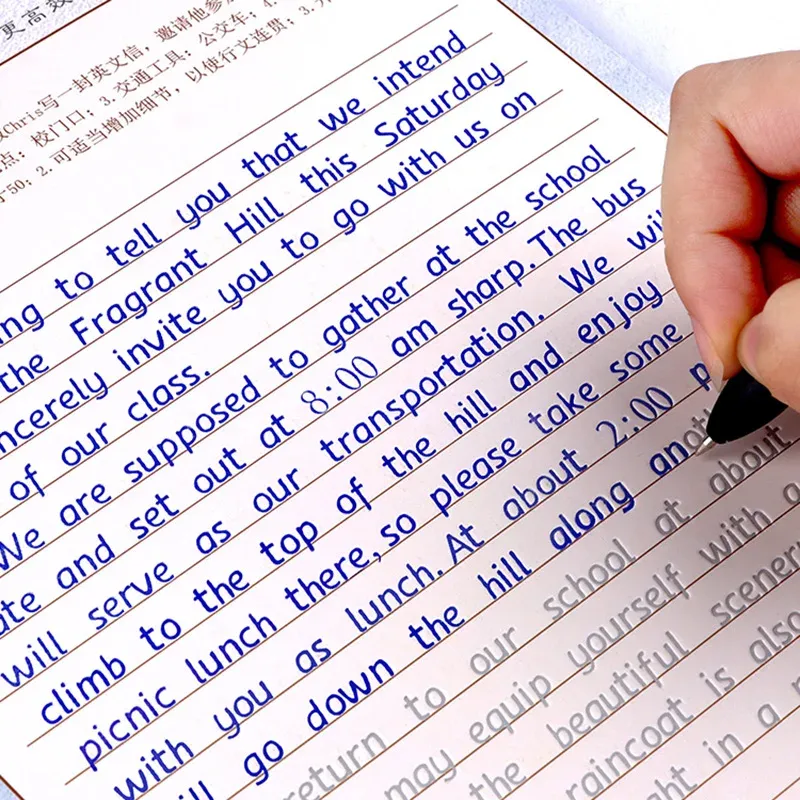 更高效
Chris写一封英文信，邀请他参
点：校门口；3.交通工具：公交车；4.
50；2.可适当增加细节，以使行文连贯；3.
ng to tell you that we intend
the Fragrant Hill this Saturday
ncerely invite you to go with us on
of our class.
We are supposed to gather at the school
ate and set out at 8:00 am sharp. The bus
will serve as our transportation. We wil
climb to the top of the hill and enjoy
picnic lunch there, so please take some
with you as lunch. At about 2:00 p
ll go down the hill along anoth
return to our school at about
may equip yourself with a
the beautiful scener
raincoat is also
ht in a